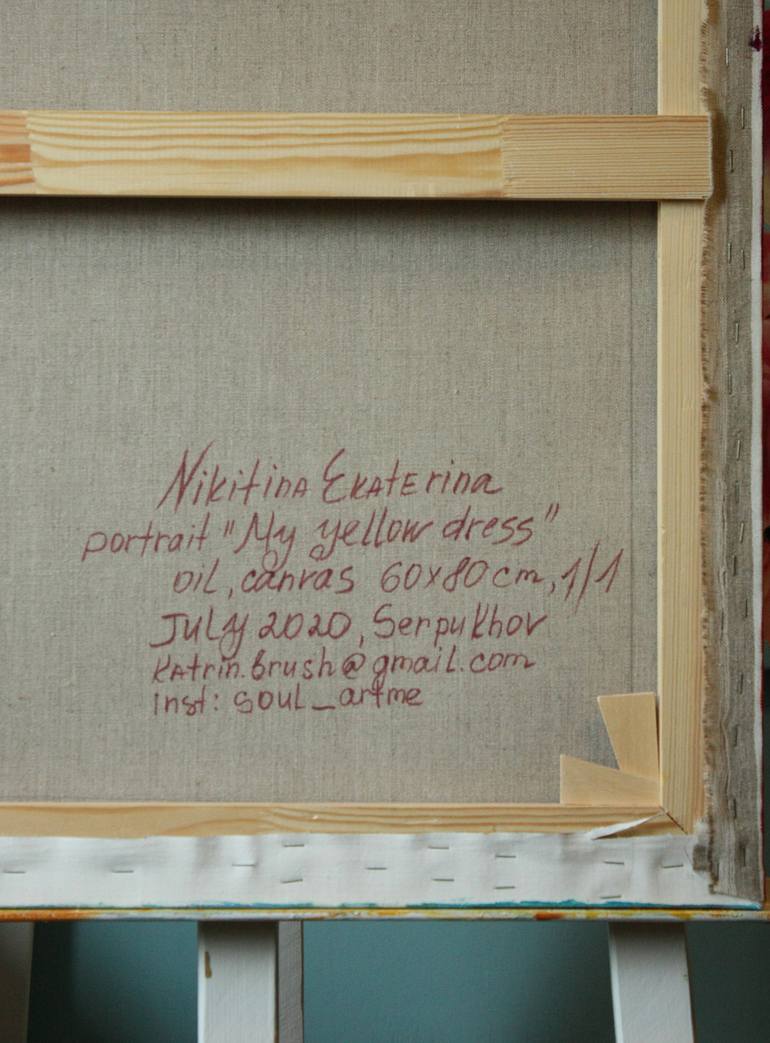 Nikitina Ekaterina
portrait "My yellow dress"
oil, canvas 60x80cm, 1/1
July 2020, Serpukhov
katrin.brush@gmail.com
inst: soul_artme